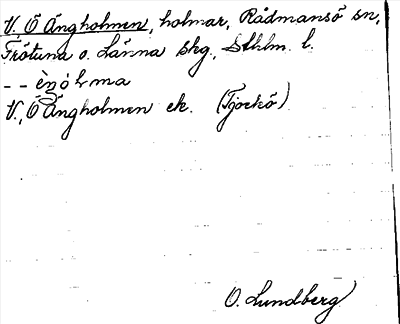 V., Ö Ängholmen, holmar, Rådmansö sn,
Frötuna o. Länna skg., Sthlm. l.
-- èŋòlma
V., Ö Ängholmen ek. (Tjockö)
O. Lundberg